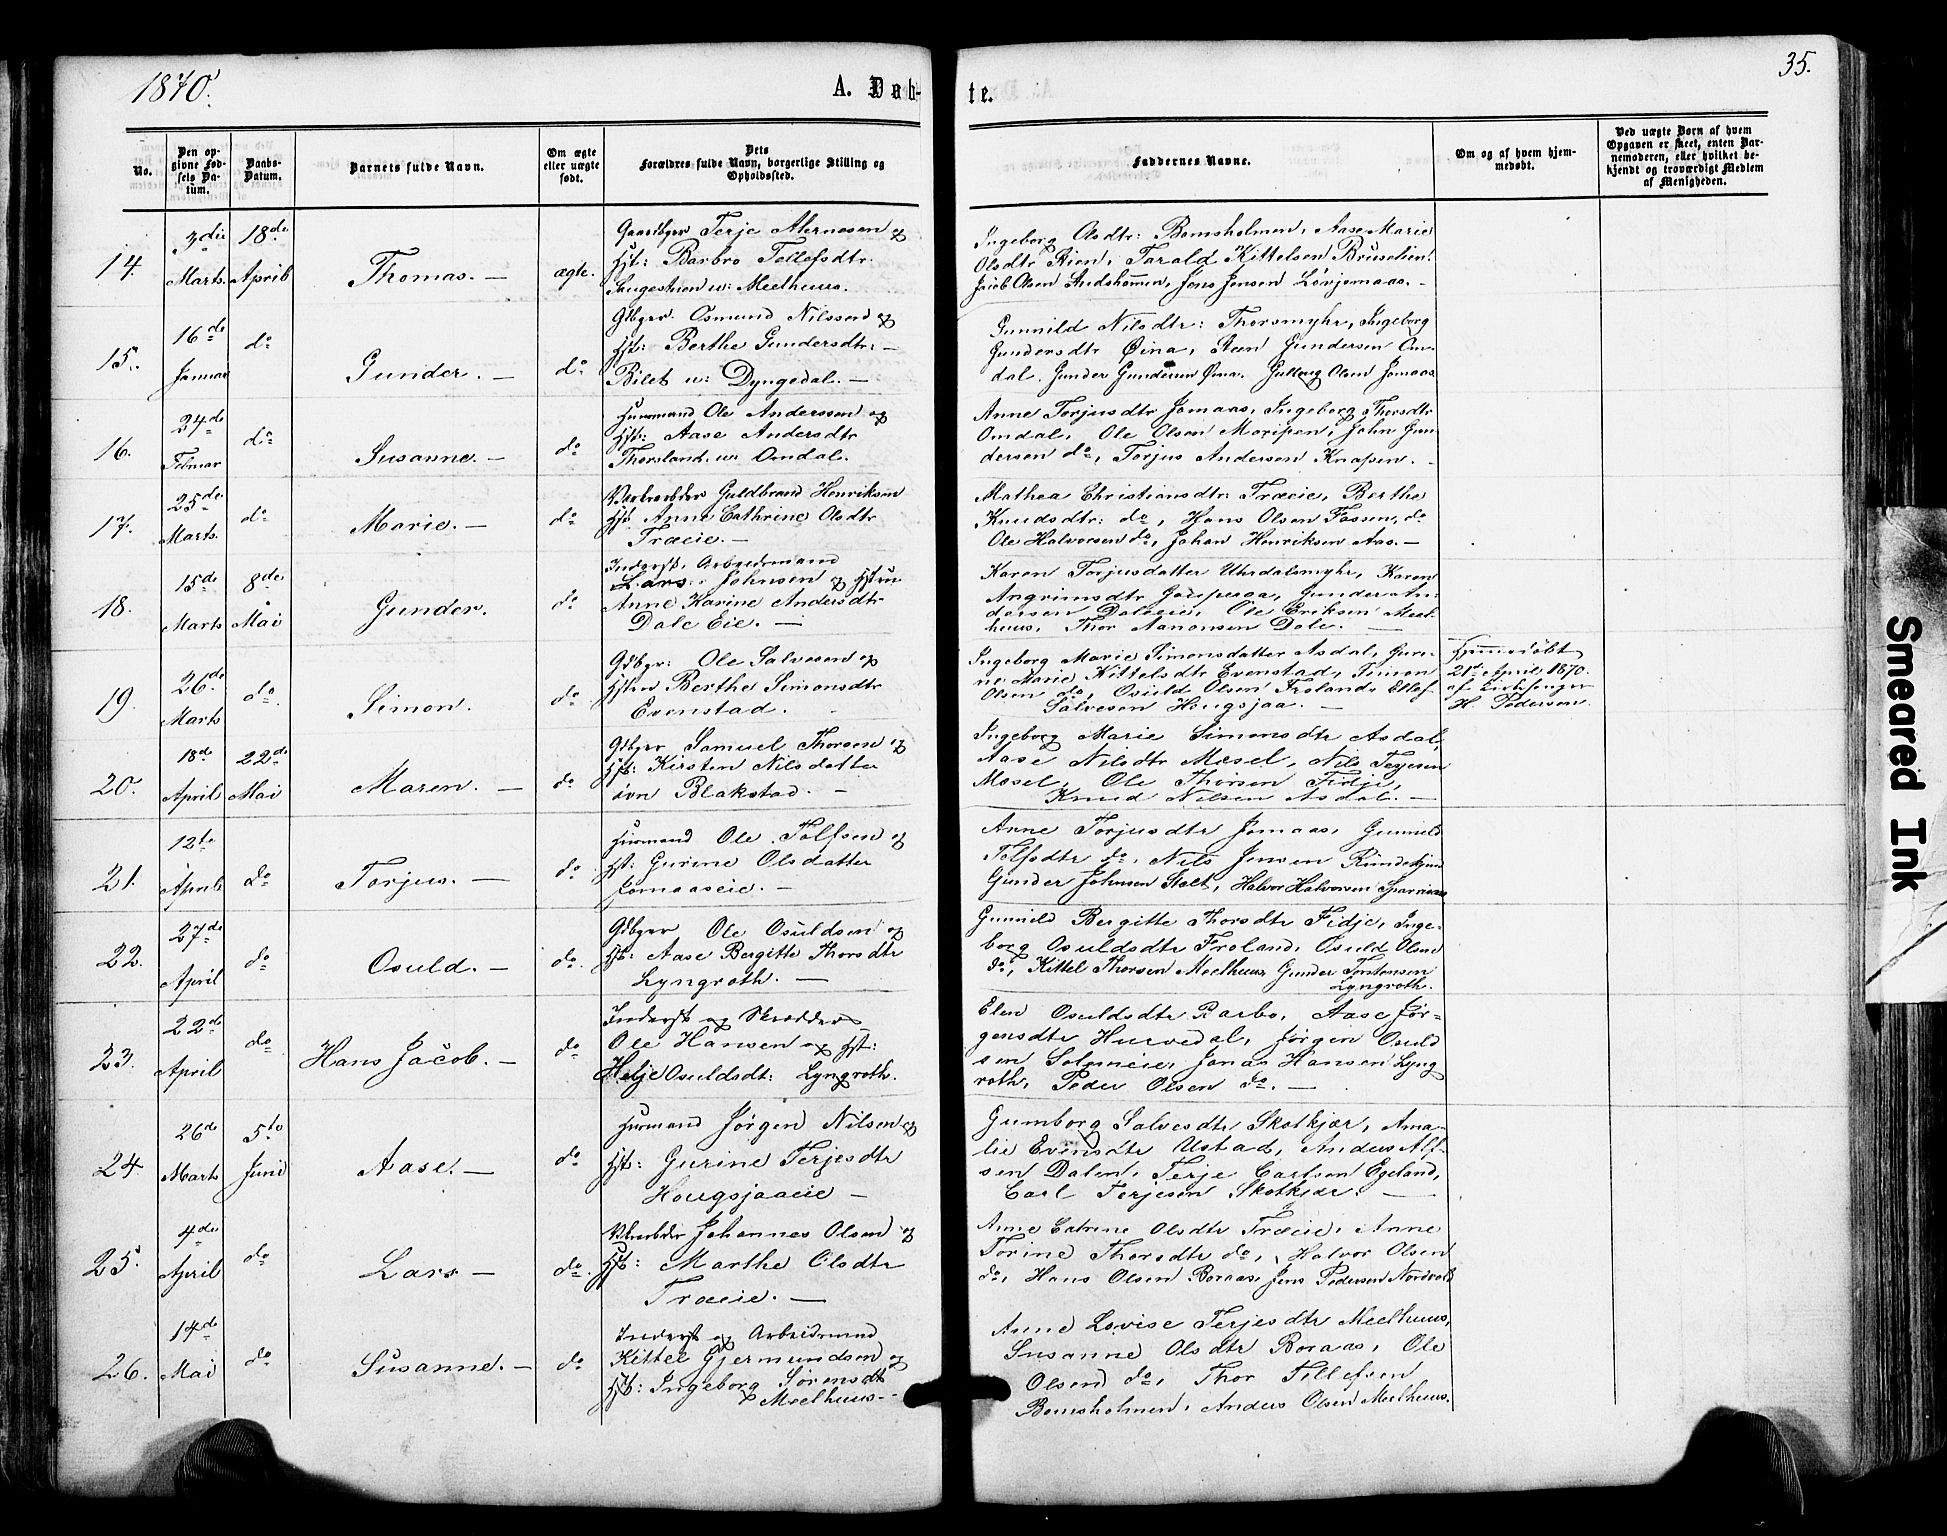 1870.
A. Dab-
te.
35.
No.
Den op-
givne Fød-
sels Da-
tum.
Daabs-
Datum.
Barnets fulde Navn.
Om ægte
eller uægte
født.
Dets
Forældres fulde Navn, borgerlige Stilling og
Opholdssted.
Faddernes Navne.
Om og af hvem hjem-
medøbt.
Ved uægte Børn af hvem
Opgaven er skeet, enten Bar-
nemoderen, eller hvilket be-
kjendt og troværdigt Medlem
af Menigheden.
14.
3die
Marts.
18de
April
Thomas. —
ægte.
Gaardbger Terje
og
Hst: Barbro Tellefsdtr.
u: Meelhuus.
Ingeborg Olsdtr: Bomsholmen, Aase Marie
Olsdtr Rien, Tarald Kittelsen
Jacob Olsen Jens Jensen
15.
16de
Januar
do
Gunder. —
do
Gdbger. Osmund Nilssen og
Hst: Berthe Gundersdtr: —
Bilet u: Dyngedal. —
Gunnild Nilsdtr: Thorsmyhr, Ingeborg
Gundersdtr Øina, Steen Gundersen Om-
dal. Gunder Gundersen Øina. Gullaug Olsen Jomaas
16.
24de
Februar
do
Susanne. —
do
Huusmand Ole Anderssen og
Hst: Aase Andersdtr
Thorsland u: Omdal.
Anne Torjusdtr Jomaas, Ingeborg Thorsdtr
Omdal, Ole Olsen Moripen, John Gun
dersen do, Torjus Andersen Knapen. -
17.
25de
Marts.
do
Marie. —
do
Værkarbder Guldbrand Henriksen
Hst. Anne Cathrine Olsdtr
Træeie. —
Mathea Christiansdtr: Træeie, Berthe
Knudsdtr: do, Hans Olsen Fossen, do
Ole Halvorsen do, Johan Henriksen Aas. —
18.
15de
Marts
8de
Mai
Gunder.
do
Inderst, Arbeidsmand
Lars Johnsen og Hstru
Anne Karine Andersdtr
Dale Eie. —
Karen Torjusdatter Uhrdalsmyhr, Karen
Angrimsdtr Gunder An-
dersen Daleeie, Ole Eriksen Meel-
huus, Thor Aanonsen Dale. —
19.
26de
Marts
do
Simon.
do
Gdbgr: Ole Salvesen og
Hstru Berthe Simonsdtr
Evenstad. -
Ingeborg Marie Simonsdatter Asdal, Guri-
ne Marie Kittelsdtr Evenstad, Simon
Olsen do, Osuld Olsen Frolands Ellef
Salvesen Hougsjaa. —
Hjemmedøbt
21de April 1870.
af Kirkesanger
H. Pedersen.
20.
18de
April
22de
Mai
Maren. —
do
Gdbger Samuel Thorsen og
Hst: Kirsten Nilsdatter
øvn Blakstad. -
Ingeborg Marie Simonsdtr Asdal,
Aase Nilsdtr Mesel, Nils Terjesen
Mesel, Ole Thorsen Fidje,
Knud Nilsen Asdal. —
21.
12te
April
do
Torjus. —
do
Husmand Ole Tolfsen og
Hst: Gurine Olsdatter
Jomaaseie. —
Anne Torjusdtr Jomaas, Gunnild
Tolfsdtr do, Nils Jensen
Gunder Johnsen Stølt, Halvor Halvorsen
22.
27de
April
do
Osuld. —
do
Gdbger Ole Osuldsen og
Hst: Aase Bergitte Thorsdtr
Lyngroth. —
Gunnild Bergitte Thorsdtr Fidje, Inge-
borg Osuldsdtr Froland, Osuld Olsen
do, Kittel Thorsen Meelhuus, Gunder Torstensen
Lyngroth.
23.
22de
April
do
Hans Jacob. —
do
Inderst og Skrædder
Ole Hansen og Hst:
Helje Osuldsdt: Lyngroth.
Elen Osuldsdtr Rarbo, Aase Jør-
gensdtr Hurvedal, Jørgen Osuld
sen Jonas Hansen Lyng
roth, Peder Olsen do. —
24
26de
Marts
5te
Juni
Aase. —
do
Husmand Jørgen Nilsen og
Hst: Gurine Terjesdtr
Hougsjaaeie —
Gumborg Salvesdtr Skotkjær, Ama-
lie Evensdtr Ustad, Anders Alf-
sen Dalen, Terje Carlsen Egeland,
Carl Terjesen Skotkjær. —
25.
4de
April
do
Lars —
do
Værkarbder Johannes Olsen og
Hst: Marthe Olsdtr
Træeie. —
Anne Catrine Olsdtr Træeie, Anne
Torine Thorsdtr do, Halvor Olsen
do, Hans Olsen Boraas, Jens Pedersen Nordvold
26.
14de
Mai
do
Susanne. —
do
Inderst og Arbeidsmand
Kittel Gjermundsen og
Hst: Ingeborg Sørensdt
Meelhuus. -
Anne Lovise Terjesdtr Meelhuus,
Susanne Olsdtr Boraas, Ole
Olsen do, Thor Tellefsen
Bomsholmen, Anders Olsen Meelhuus.
Smeared Ink